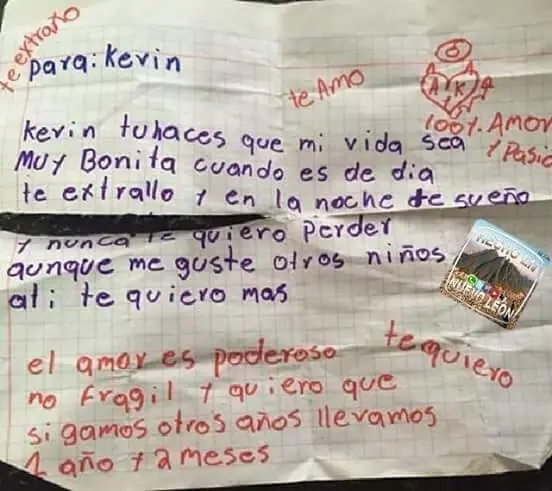 te extraño
para: Kevin
te Amo
A K
100%. AMOR
y Pasio
Kevin tuhaces que mi vida sea
MUY Bonita cuando es de dia
te extrallo y en la noche te sueño
y nunca te quiero perder
aunque me guste otros niños
ati te quiero mas
HECHO EN
NUEVO LEÓN
te quiero
el amor es poderoso
no Fragil y quiero que
sigamos otros años llevamos
1 año y 2 meses